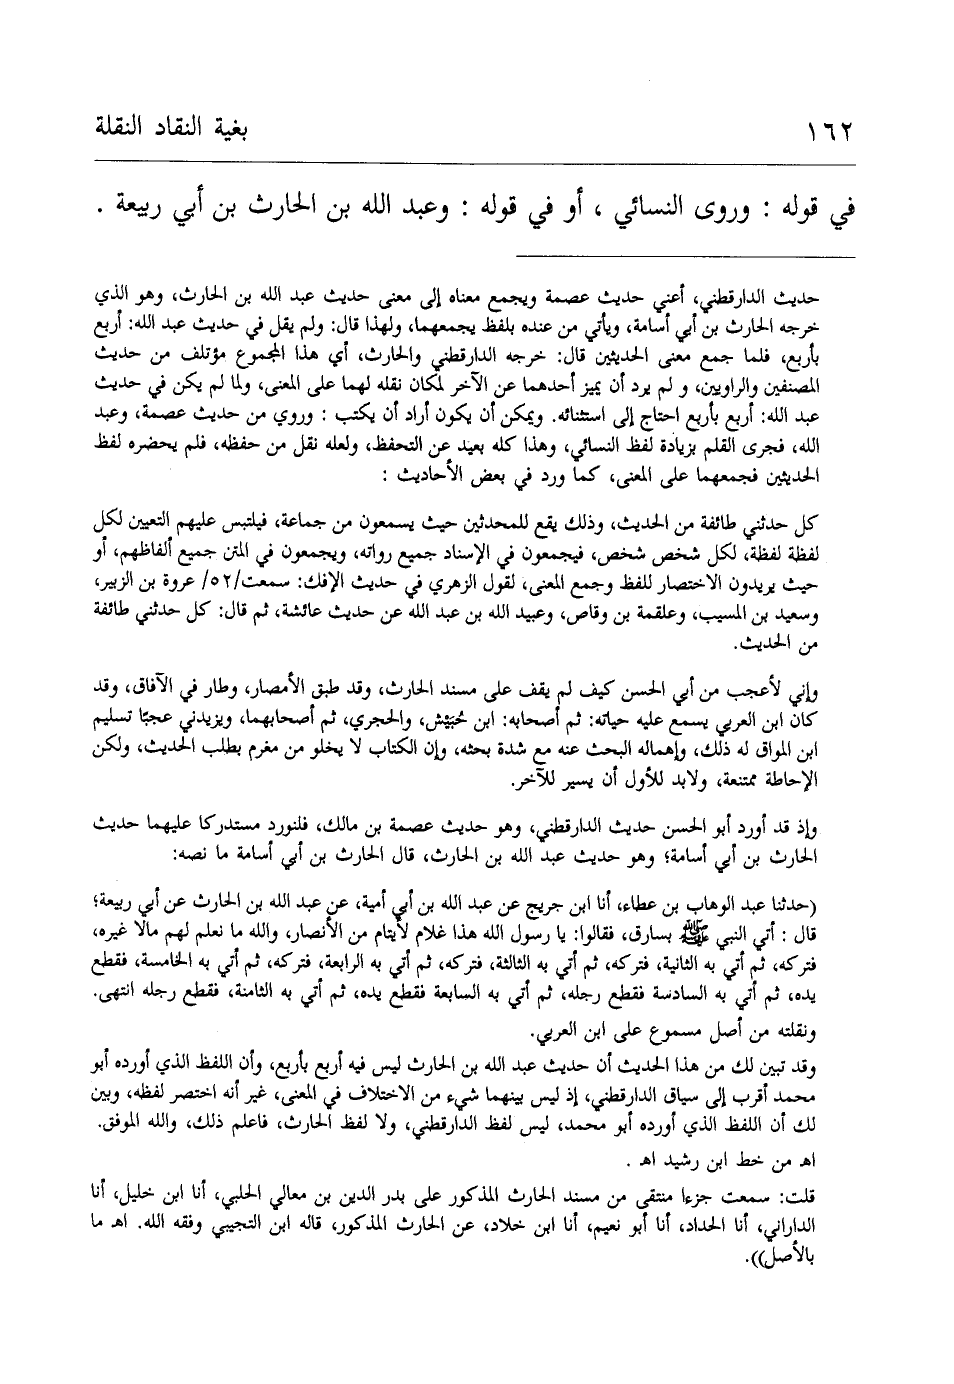 ١٦٢
بغية النقاد النقلة
في قوله : وروى النسائي ، أو في قوله : وعبد الله بن الحارث بن أبي ربيعة .
حديث الدارقطني، أعني حديث عصمة ويجمع معناه إلى معنى حديث عبد الله بن الحارث، وهو الذي
خرجه الحارث بن أبي أسامة، ويأتي من عنده بلفظ يجمعهما، ولهذا قال: ولم يقل في حديث عبد الله: أربع
بأربع، فلما جمع معنى الحديثين قال: خرجه الدارقطني والحارث، أي هذا المجموع مؤتلف من حديث
المصنفين والراويين، و لم يرد أن يميز أحدهما عن الآخر لمكان نقله لهما على المعنى، ولما لم يكن في حديث
عبد الله: أربع بأربع احتاج إلى استثنائه. ويمكن أن يكون أراد أن يكتب : وروي من حديث عصمة، وعبد
الله، فجرى القلم بزيادة لفظ النسائي، وهذا كله بعيد عن التحفظ، ولعله نقل من حفظه، فلم يحضره لفظ
الحديثين فجمعهما على المعنى، كما ورد في بعض الأحاديث :
كل حدثني طائفة من الحديث، وذلك يقع للمحدثين حيث يسمعون من جماعة، فيلتبس عليهم التعيين لكل
لفظة لفظة، لكل شخص شخص، فيجمعون في الإسناد جميع رواته، ويجمعون في المتن جميع ألفاظهم، أو
حيث يريدون الاختصار للفظ وجمع المعنى، لقول الزهري في حديث الإفك: سمعت/٥٢/ عروة بن الزبير،
وسعيد بن المسيب، وعلقمة بن وقاص، وعبيد الله بن عبد الله عن حديث عائشة، ثم قال: كل حدثني طائفة
من الحديث.
وإني لأعجب من أبي الحسن كيف لم يقف على مسند الحارث، وقد طبق الأمصار، وطار في الآفاق، وقد
كان ابن العربي يسمع عليه حياته: ثم أصحابه: ابن حُبَيْش، والحجري، ثم أصحابهما، ويزيدني عجبًا تسليم
ابن المواق له ذلك، وإهماله البحث عنه مع شدة بحثه، وإن الكتاب لا يخلو من مغرم بطلب الحديث، ولكن
الإحاطة ممتنعة، ولابد للأول أن يسير للآخر.
وإذ قد أورد أبو الحسن حديث الدارقطني، وهو حديث عصمة بن مالك، فلنورد مستدركا عليهما حديث
الحارث بن أبي أسامة؛ وهو حديث عبد الله بن الحارث، قال الحارث بن أبي أسامة ما نصه:
(حدثنا عبد الوهاب بن عطاء، أنا ابن جريج عن عبد الله بن أبي أمية، عن عبد الله بن الحارث عن أبي ربيعة؛
قال : أتي النبي ﷺ بسارق، فقالوا: يا رسول الله هذا غلام لأيتام من الأنصار، والله ما نعلم لهم مالا غيره،
فتركه، ثم أتي به الثانية، فتركه، ثم أتي به الثالثة، فتركه، ثم أتي به الرابعة، فتركه، ثم أتي به الخامسة، فقطع
يده، ثم أتي به السادسة فقطع رجله، ثم أتي به السابعة فقطع يده، ثم أتي به الثامنة، فقطع رجله انتهى.
ونقلته من أصل مسموع على ابن العربي.
وقد تبين لك من هذا الحديث أن حديث عبد الله بن الحارث ليس فيه أربع بأربع، وأن اللفظ الذي أورده أبو
محمد أقرب إلى سياق الدارقطني، إذ ليس بينهما شيء من الاختلاف في المعنى، غير أنه اختصر لفظه، وبين
لك أن اللفظ الذي أورده أبو محمد، ليس لفظ الدارقطني، ولا لفظ الحارث، فاعلم ذلك، والله الموفق.
اهـ من خط ابن رشيد اهـ .
قلت: سمعت جزءا منتقى من مسند الحارث المذكور على بدر الدين بن معالي الحلبي، أنا ابن خليل، أنا
الداراني، أنا الحداد، أنا أبو نعيم، أنا ابن خلاد، عن الحارث المذكور، قاله ابن التجيبي وفقه الله. اهـ ما
بالأصل)).